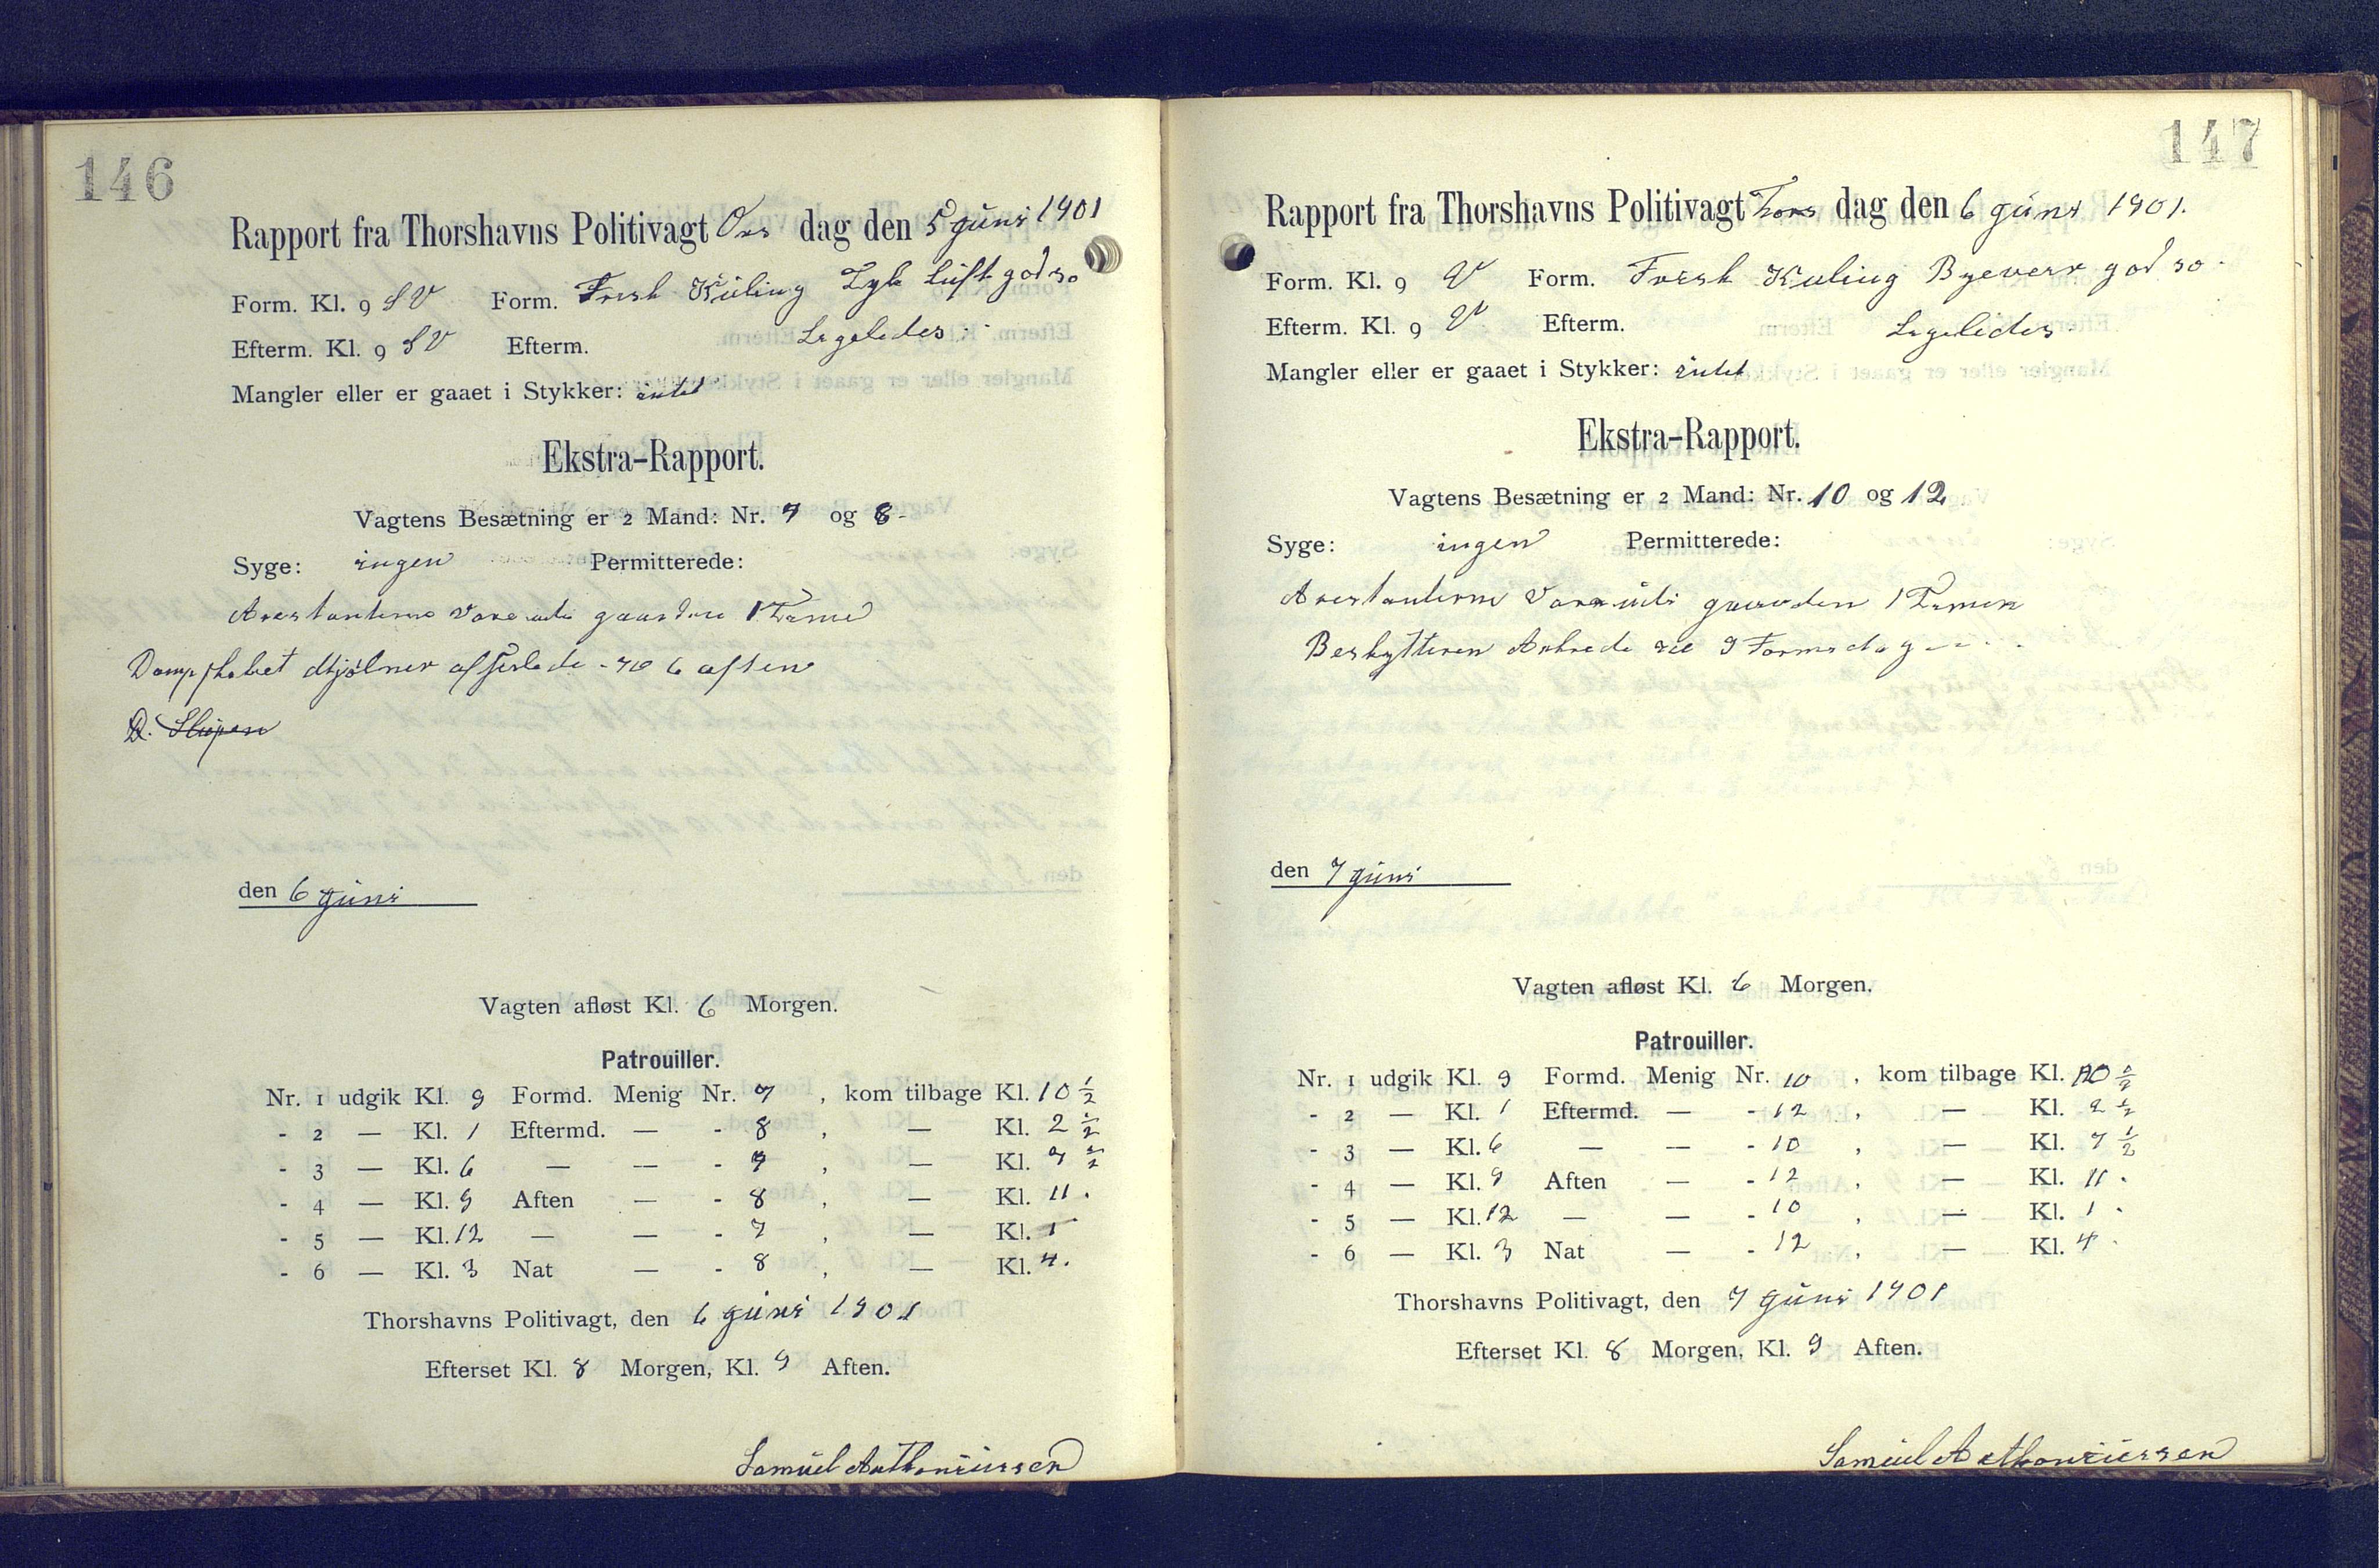 146
Rapport fra Thorshavns Politivagt Ons dag den 5 Juni 1901
Form. Kl. 9 SV Form. Frisk Kuling Tyk Luft god so
Efterm. Kl. 9 SV Efterm. Ligeledes
Mangler eller er gaaet i Stykker: intet
Ekstra-Rapport.
Vagtens Besætning er 2 Mand: Nr. 7 og 8-
Syge: ingen Permitterede:
Arestanterne vare ude gaarden 1 Time
Dampskibet Mjølner afseilede 6 aften
D. Skipen
den 6 Juni
Vagten afløst Kl. 6 Morgen.
Patrouiller.
Nr. 1 udgik Kl. 9 Formd. Menig Nr. 7, kom tilbage Kl. 10 ½
- 2 — Kl. 1 Eftermd. — - 8, — Kl. 2 ½
- 3 — Kl. 6 — — - 7, — Kl. 7 ½
- 4 — Kl. 9 Aften — - 8, — Kl. 11.
- 5 — Kl. 12 — — - 7, — Kl. 1
- 6 — Kl. 3 Nat — - 8, — Kl. 4.
Thorshavns Politivagt, den 6 Juni 1901
Efterset Kl. 8 Morgen, Kl. 9 Aften.
Samuel Anthoniussen
147
Rapport fra Thorshavns Politivagt Tors dag den 6 Juni 1901.
Form. Kl. 9 V Form. Frisk Kuling Byeveir god so
Efterm. Kl. 9 V Efterm. Ligeledes
Mangler eller er gaaet i Stykker: intet
Ekstra-Rapport.
Vagtens Besætning er 2 Mand: Nr. 10 og 12
Syge: ingen Permitterede:
Arestanterne vare udi gaarden 1 Timen
Beskytteren Ankrede 9 Formidag
den 7 Juni
Vagten afløst Kl. 6 Morgen.
Patrouiller.
Nr. 1 udgik Kl. 9 Formd. Menig Nr. 10, kom tilbage Kl. 10 ½
- 2 — Kl. 1 Eftermd. — - 12, — Kl. 2 ½
- 3 — Kl. 6 — — - 10, — Kl. 7 ½
- 4 — Kl. 9 Aften — - 12, — Kl. 11.
- 5 — Kl. 12 — — - 10, — Kl. 1.
- 6 — Kl. 3 Nat — - 12, — Kl. 4.
Thorshavns Politivagt, den 7 Juni 1901
Efterset Kl. 8 Morgen, Kl. 9 Aften.
Samuel Anthoniussen